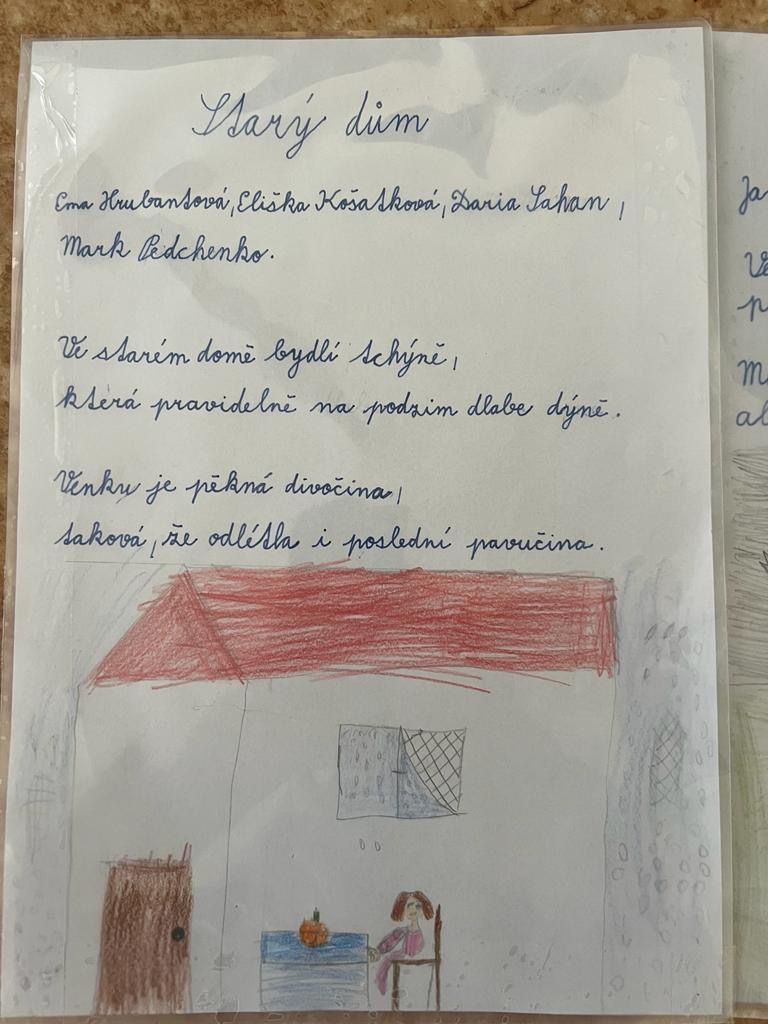 Starý dům
Ema Hrubantová, Eliška Košatková, Daria Sahan,
Mark Pedchenko.
Ve starém domě bydlí tchýně,
která pravidelně na podzim dlabe dýně.
Venku je pěkná divočina,
taková, že odlétla i poslední pavučina.
Ja
p